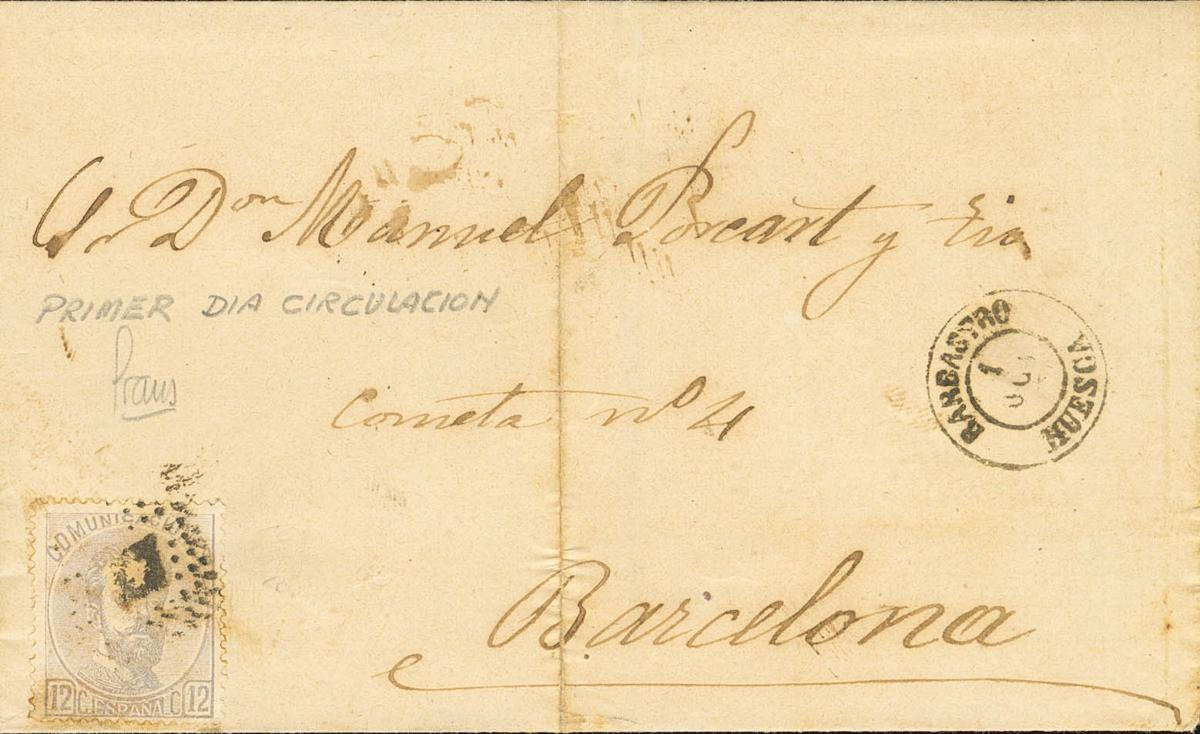 Sr Don Manuel Porcart y Cia
PRIMER DIA CIRCULACION
Graus
Cometa nº 4
BARBASTRO
1
HUESCA
COMUNICACIO
12 C. ESPAÑA. C 12
Barcelona